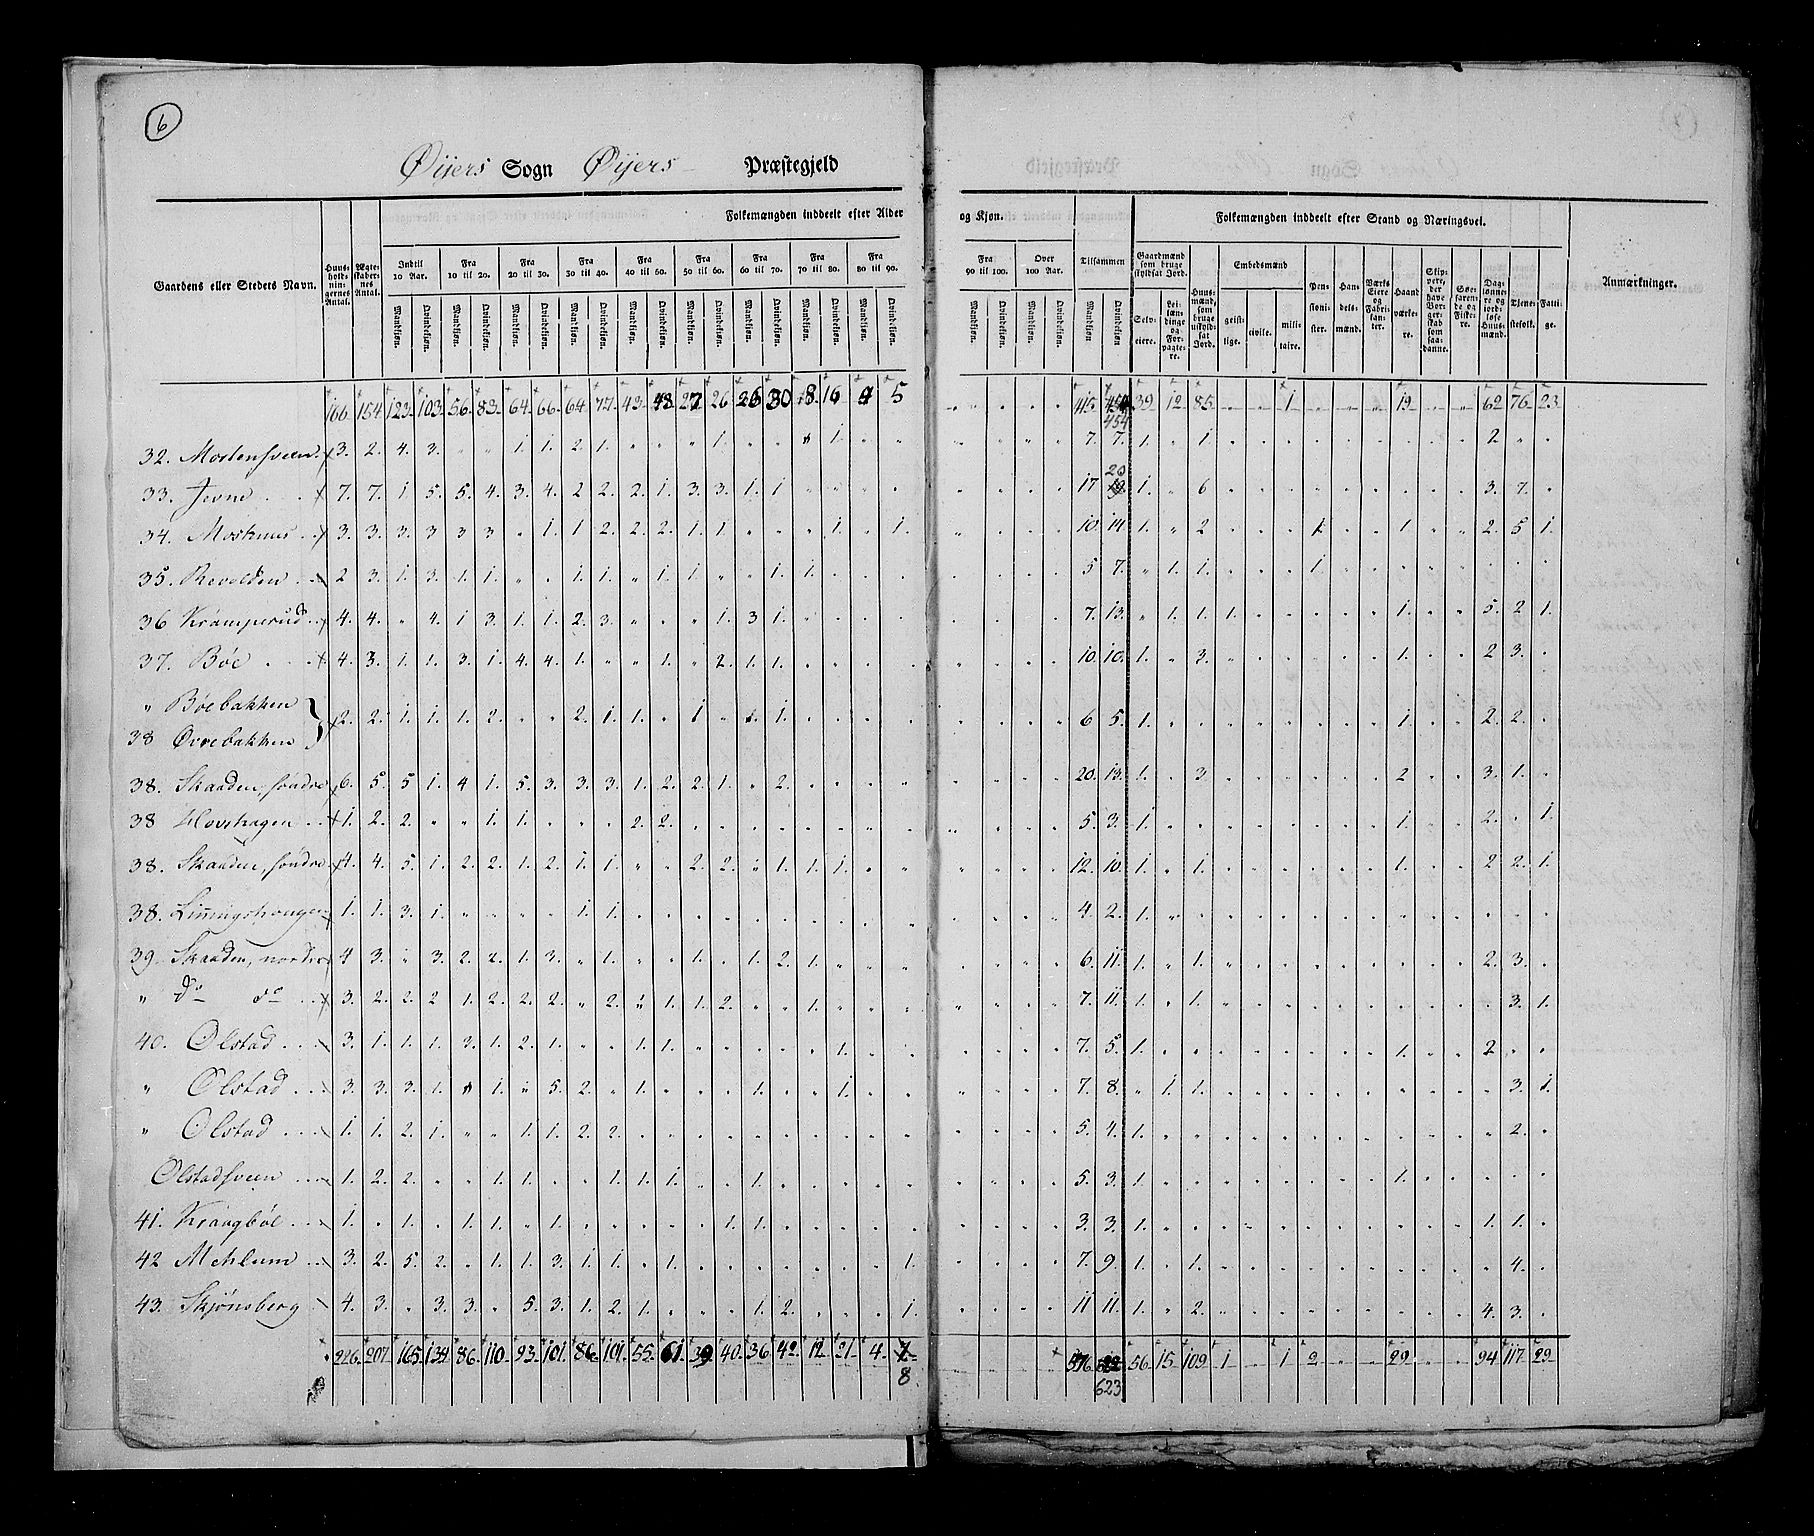 6
Øijers Sogn Øijers Præstegjeld
Gaardens eller Stedets Navn.
Huusholdningernes Antal.
Ægteskabernes Antal.
Folkemængden inddeelt efter Alder og Kjøn.
Indtil 10 Aar. Fra 10 til 20. Fra 20 til 30. Fra 30 til 40. Fra 40 til 50. Fra 50 til 60. Fra 60 til 70. Fra 70 til 80. Fra 80 til 90. Fra 90 til 100. Over 100 Aar.
Mandkjøn. Qvindekjøn.
Tilsammen
Folkemængden inddeelt efter Stand og Næringsvei.
Gaardmænd som bruge skyldsat Jord.
Selveiere. Leilændinge og Forpagtere.
Huusmænd, som bruge uskyldsat Jord.
Embedsmænd
geistlige. civile. militaire.
Pensionister.
Handelsmænd.
Værks Eiere og Fabrikanter.
Haandværkere.
Skippere, der have Borgerskab som saadanne.
Søefarende og Fiskere.
Daglønnere og jordløse Huusmænd.
Tjenestefolk.
Fattige.
Anmærkninger.
166. 154. 123. 103. 56. 83. 64. 66. 64. 77. 43. 48. 27 26 26 30 8. 16 4 5 " " " " 415. 454 39 12 85 " " 1 " " " 19 " " 62 76 23
454
32. Mostensveen. 3. 2. 4. 3. " " 1. 1. 2. 1. " " " 1. " " " 1. " " " " " " 7. 7. 1. " 1. " " " " " " " " " 2 " "
33. Jevne 7. 7. 1 5. 5. 4. 3. 4. 2 2. 2. 1. 3. 3. 1. 1 " " " " " " " " 17 20 1. " 6 " " " " " " " " " 3. 7. "
34. Moshuus 3. 3. 3. 3 3 3 " 1. 1 2. 2. 2. 1. 1. " " " 1. " 1. " " " " 10. 14. 1. " 2 " " " 1. " " 1. " " 2. 5 1.
35. Revolden 2 3. 1. 3. 1. 1. " " 1. 1. " 1. 1. " " 1. 1. " " " " " " " 5 7. " 1. 1. " " " 1. " " " " " " " "
36 Kramperud 4. 4. " 4. 1 3. 1. 1. 2. 3. " " " 1. 3 1. " " " " " " " " 7. 13. " 1. 1. 1. " " " " " 1. " " 5. 2 1.
37. Bøe 4. 3. 1. 1. 3. 1. 4. 4. 1. " " 1. " 2. 1. 1. " " " " " " " " 10. 10. 1. " 3. " " " " " " 1. " " 2 3. "
" Bøebakken
38 Øvrebakken 2. 2. 1. 1. 1. 2. " " 2. 1. 1. " 1 " 1. 1. " " " " " " " " 6 5. 1. " " " " " " " " 1. " " 2. 2. "
38. Skaaden, søndre 6. 5. 5 1. 4 1. 5. 3. 3. 3. 1. 2. 2. 1. " 2. " " " " " " " " 20. 13. 1. " 3 " " " " " " 2 " " 3. 1. "
38 Hovshagen 1. 2. 2. " " 1. 1. " " " 2. 2. " " " " " " " " " " " " 5. 3. 1. " " " " " " " " 1. " " 2. " 1.
38. Skaaden, søndre 4. 4. 5 1. 2. 2. 1. 2. 1. 1. " " 2. 2. " 1. 1. 1. " " " " " " 12. 10. 1. " 1. " " " " " " 1. " " 2 2. 1.
38. Linningshougen 1. 1. 3. 1. " " " " 1. 1. " " " " " " " " " " " " " " 4. 2. 1. " " " " " " " " " " " " " "
39. Skaaden, nordre 4 3. " 3. 2. 2. 1. 3. " 1. " " 1. " 1. 2. 1. " " " " " " " 6. 11. 1. " 1. " " " " " " " " " 2. 3. "
" do do 3. 2. 2. 2 1. 2. 2. 2. " 2. " 1. 1. 2. " " 1. " " " " " " " 7. 11. 1. " 1. " " " " " " " " " " 3. 1.
40. Olstad 3. 1. 1. 1. 3. 1. 2. 1. " " 1. 1. " " " " " 1. " " " " " " 7. 5. 1. " " " " " " " " 1. " " 2 " "
" Olstad 3. 3. 3. 1. " 1. " 5. 2. " 1. " " " 1. " " 1. " " " " " " 7. 8. " 1. 1. " " " " " " " " " " 3. 1.
" Olstad 1. 1. 2. 1. " " 1. 1. 2. 2. " " " " " " " " " " " " " " 5. 4. 1. " " " " " " " " " " " " 2. "
Olstadsveen 1. 2. 2. " " 1. 1. " " 1. 1. 1. " " 1. " " " " " " " " " 5. 3. 1. " " " " " " " " 1. " " " " "
41. Kraagbøl 1. " 1. " 1. 1. " 1. " " " " " 1. 1. " " " " " " " " " 3. 3. 1. " " " " " " " " " " " 1. 1. "
42 Mehlum 3. 2. 5. 2. " 1. 1. 3. 1. 1. " 1. " " " " " " " 1. " " " " 7. 9. 1. " 1. " " " " " " " " " " 4. "
43. Skjønsberg 4. 3. " 3. 3. " 5. 3. 1. 2. 1. " " " 1. 2. " " " 1. " " " " 11 11. 1. " 2. " " " " " " " " " 4. 3. "
226. 207. 165. 134. 86. 110. 93. 101. 86. 101. 55. 61. 39 40. 36 42. 12 21. 4. 7 " " " " 576 56. 15 109. 1 " 1 2 " " 29 " " 94 117. 29
8 623